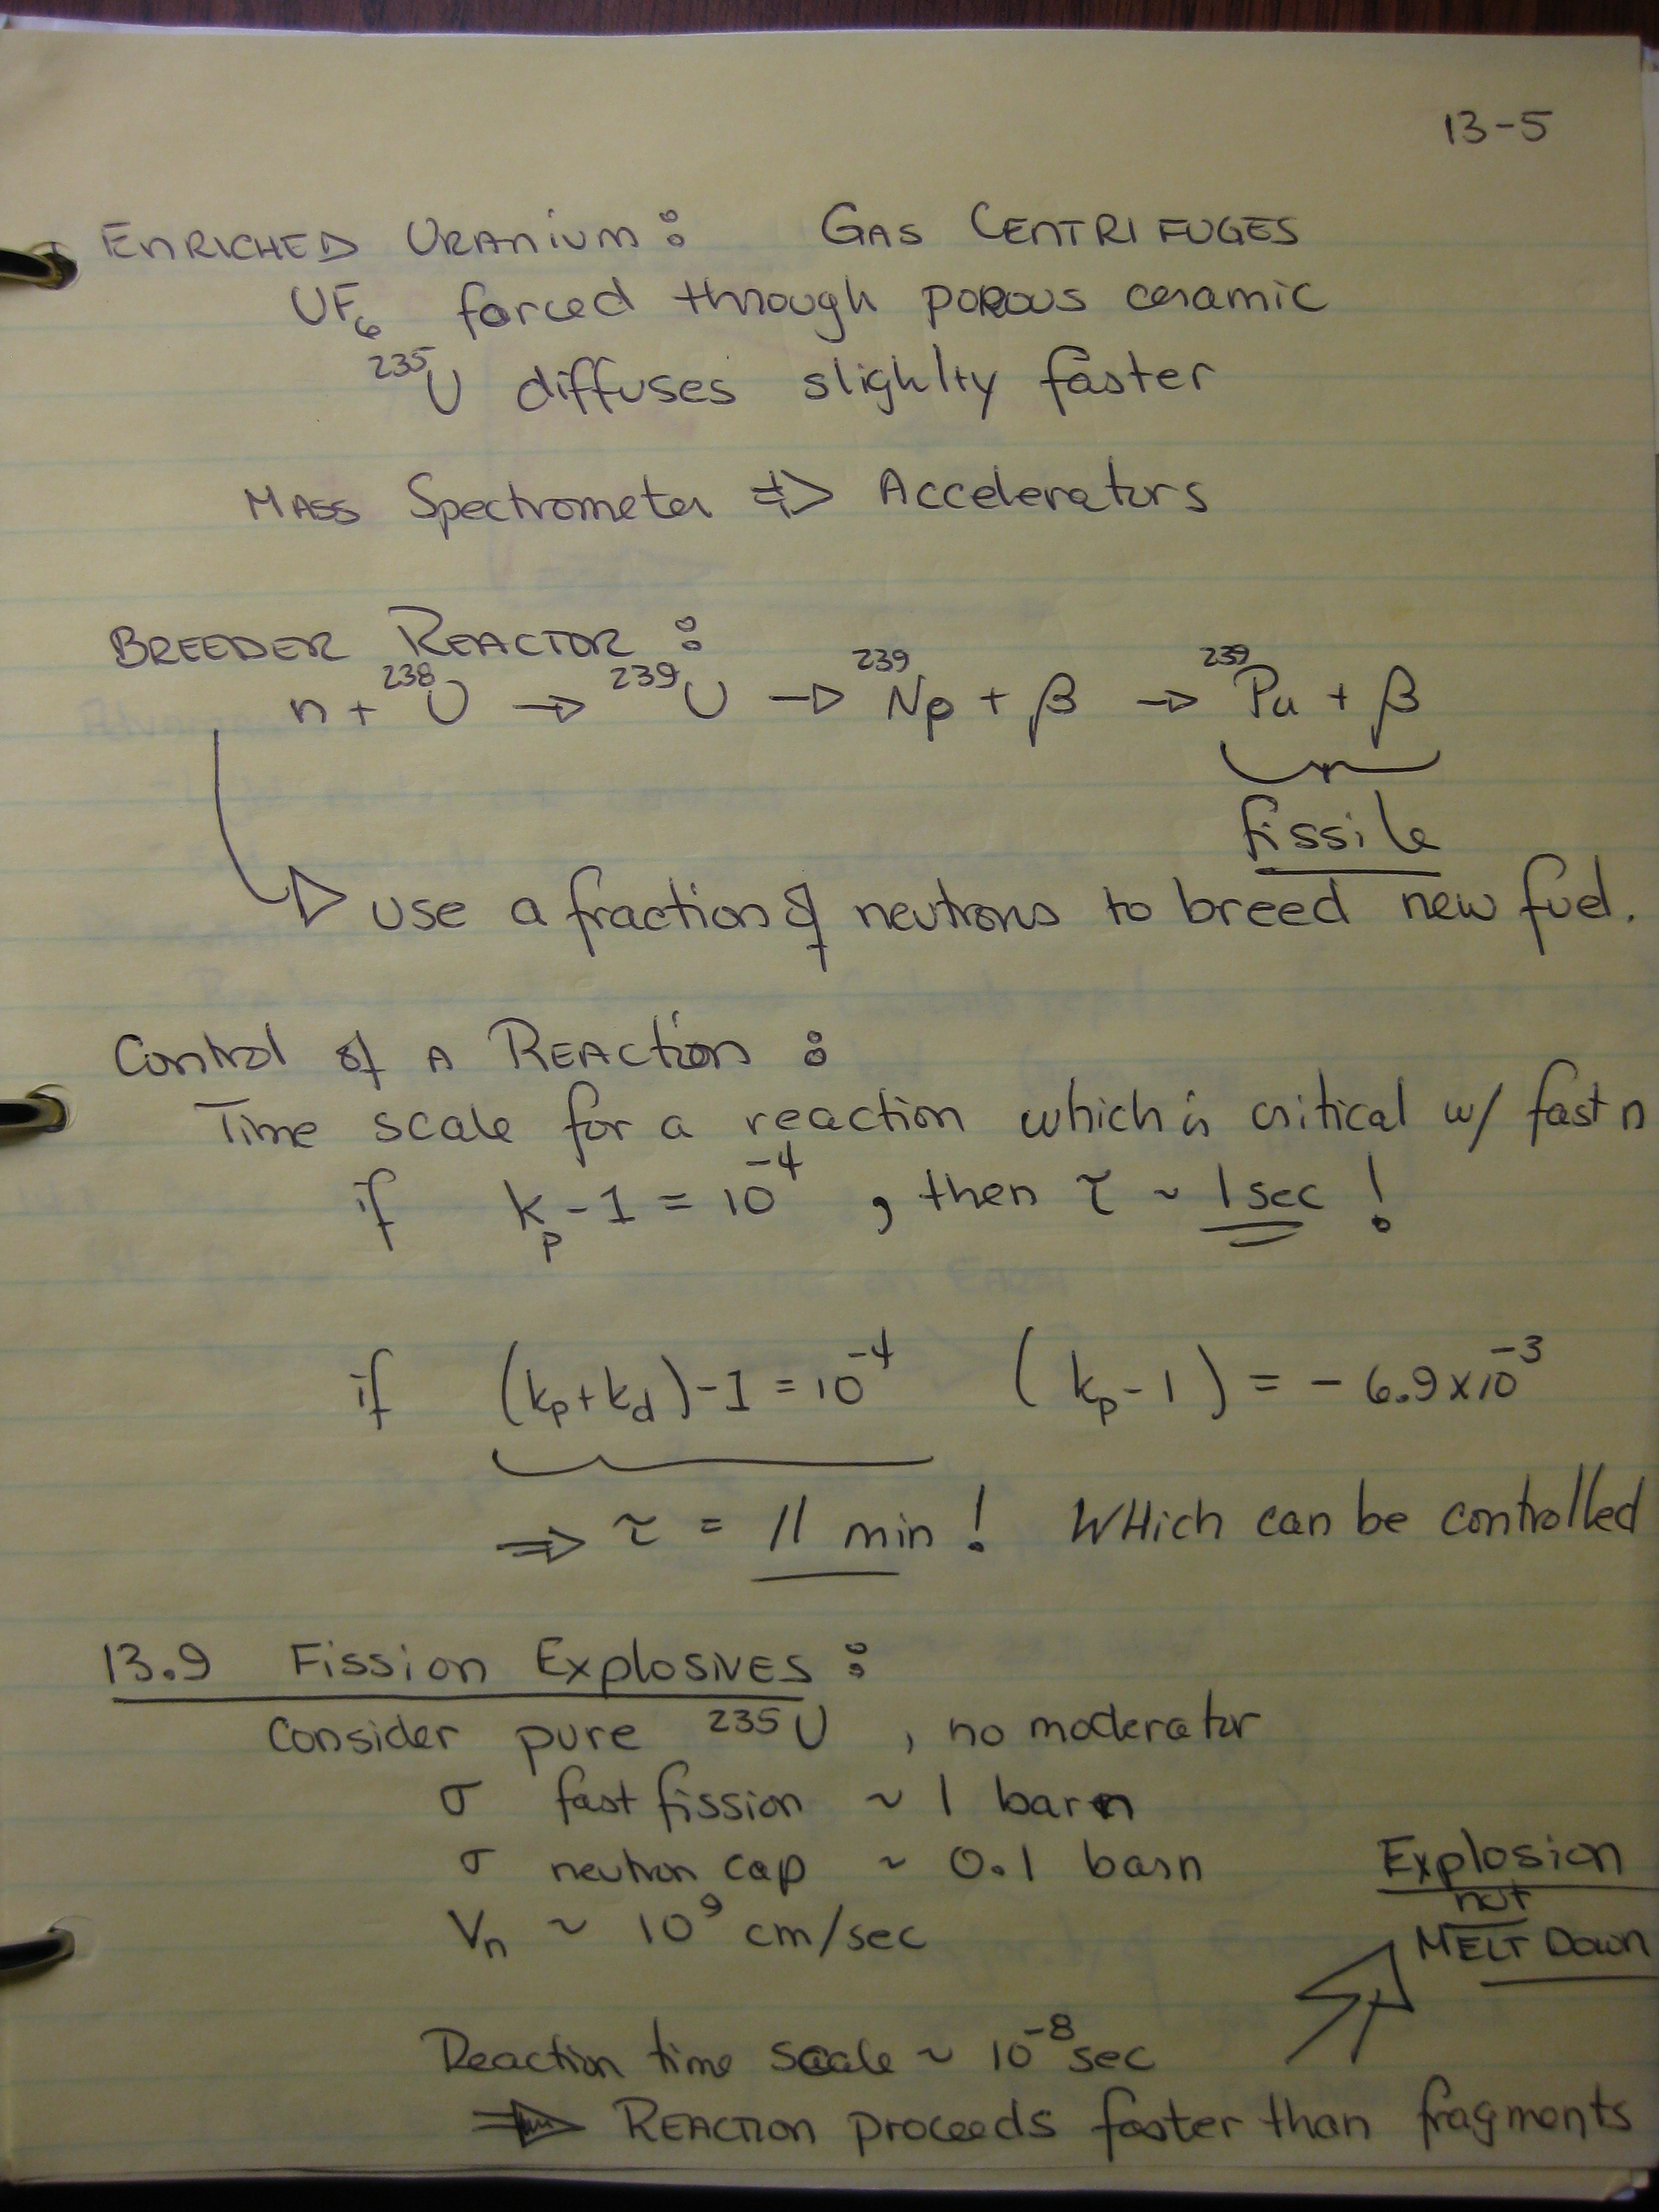 13-5
ENRICHED URANIUM: GAS CENTRIFUGES
UF₆ forced through porous ceramic
²³⁵U diffuses slighlty faster
MASS Spectrometer ⇒ Accelerators
BREEDER REACTOR:
n + ²³⁸U → ²³⁹U → ²³⁹Np + β → ²³⁹Pu + β
fissile
use a fraction of neutrons to breed new fuel.
Control of A REACTION:
Time scale for a reaction which is critical w/ fast n
if k_p - 1 = 10⁻⁴, then τ ~ 1 sec!
if (k_p + k_d) - 1 = 10⁻⁴ (k_p - 1) = - 6.9 x 10⁻³
⇒ τ = 11 min! WHich can be controlled
13.9 Fission Explosives:
Consider pure ²³⁵U, no moderator
σ fast fission ~ 1 barn
σ neutron cap ~ 0.1 barn
V_n ~ 10⁹ cm/sec
Explosion
not
MELT Down
Reaction time scale ~ 10⁻⁸ sec
⇒ REACTION proceeds faster than fragments